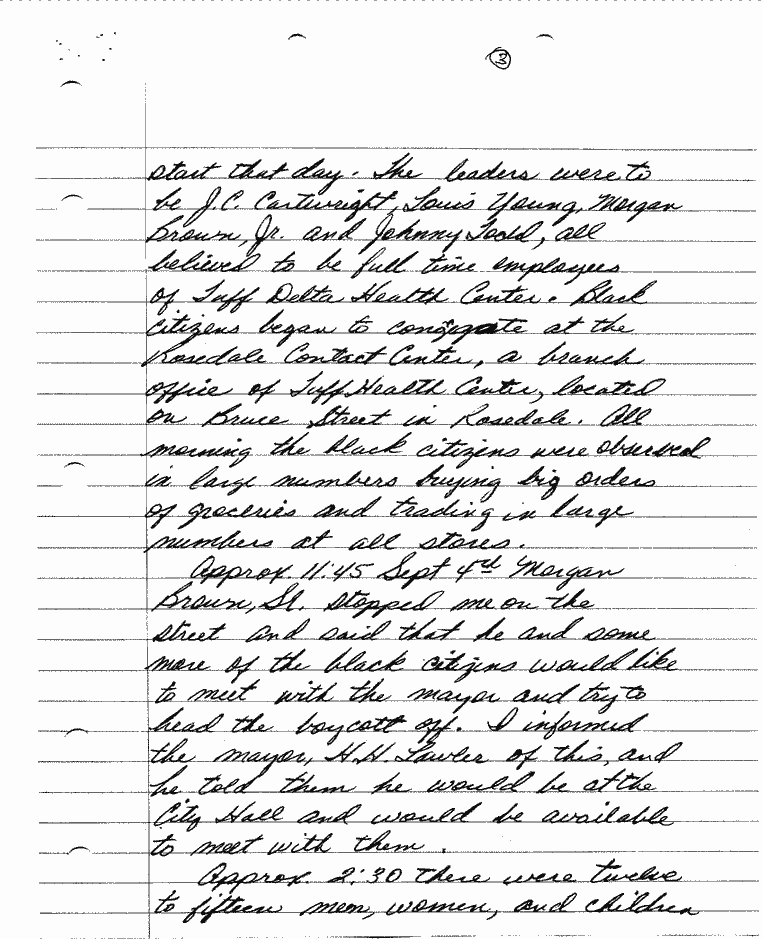 3
start that day. The leaders were to
be J.C. Cartwright, Louis Young, Morgan
Brown, Jr. and Johnny Todd, all
believed to be full time employees
of Tuff Delta Health Center. Black
citizens began to congregate at the
Rosedale Contact Center, a branch
office of Tuff Health Center, located
on Bruce Street in Rosedale. All
morning the black citizens were observed
in large numbers buying big orders
of groceries and trading in large
numbers at all stores.
Approx. 11:45 Sept 4th Morgan
Brown, Sr. stopped me on the
street and said that he and some
more of the black citizens would like
to meet with the mayor and try to
head the boycott off. I informed
the mayor, H.H. Lawler of this, and
he told them he would be at the
City Hall and would be available
to meet with them.
Approx. 2:30 there were twelve
to fifteen men, women, and children